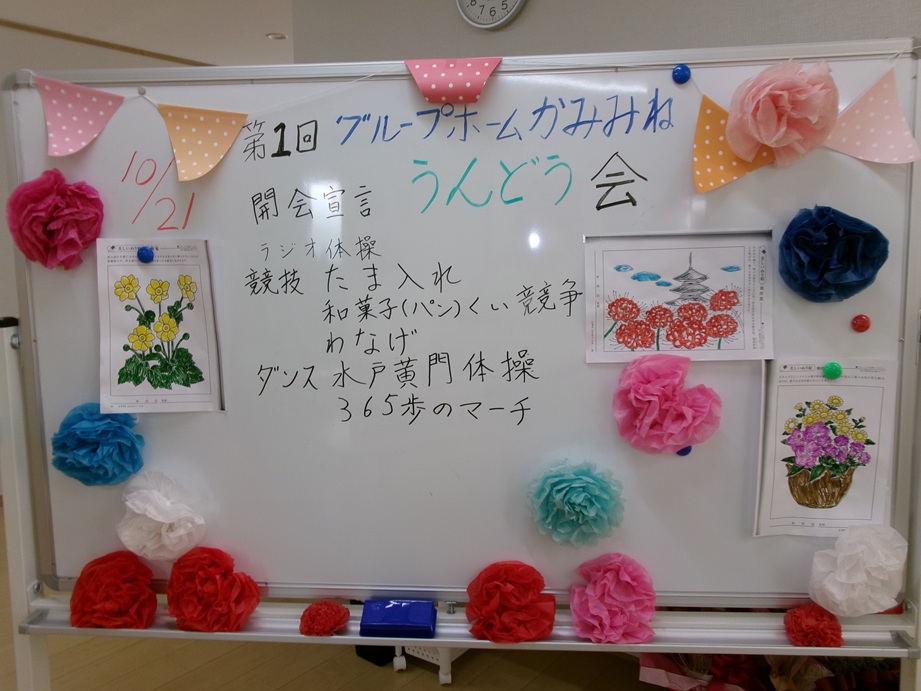 第1回 グループホームかみみね
10/21
うんどう会
開会宣言
ラジオ体操
競技 たま入れ
和菓子(パン)くい競争
わなげ
ダンス 水戸黄門体操
365歩のマーチ
8 7 6 5